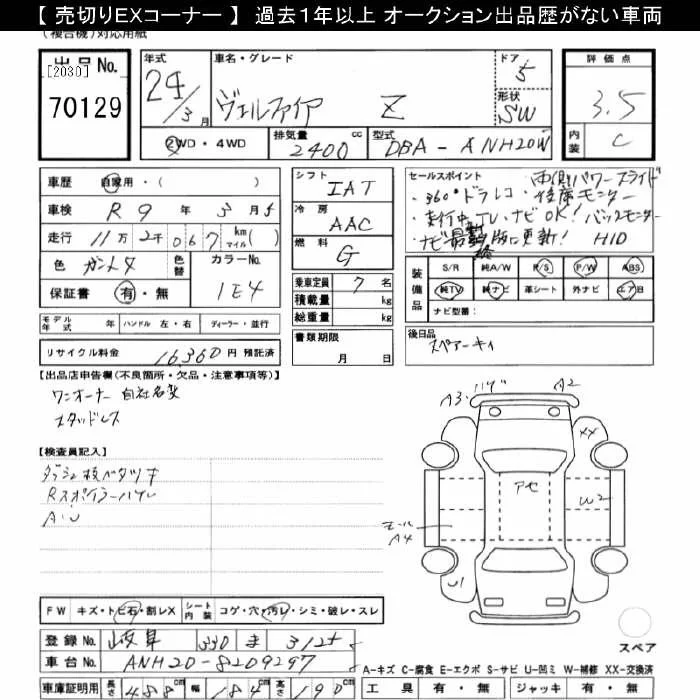 【 売切りEXコーナー 】 過去１年以上 オークション出品歴がない車両
(複合機)対応用紙
出品No. [2030] 70129
年式 24/3月
車名・グレード ヴェルファイア Z
ドア 5
形状 SW
評価点 3.5
内装 C
2WD・4WD
排気量 2400 cc
型式 DBA-ANH20W
車歴 自家用・( )
車検 R9年 3月
走行 11万2千067 km( ) マイル( )
色 ガンメタ 色替 カラーNo. 1E4
保証書 有・無
シフト IAT
冷房 AAC
燃料 G
乗車定員 7 名
積載量 kg
総重量 kg
書類期限 月 日
セールスポイント 両側パワースライド
・360°ドラレコ・後席モニター
・走行中TV・ナビOK! バックモニター
・ナビ最新版に更新! HID
装備品 S/R 純A/W P/S P/W ABS
純TV 純ナビ 革シート 外ナビ エアB
ナビ型番：
モデル年式 年 ハンドル 左・右 ディーラー・並行
リサイクル料金 16360 円 預託済
後日品 スペアーキー
【出品店申告欄(不良箇所・欠品・注意事項等)】
ワンオーナー 自社名変
スタッドレス
【検査員記入】
ダッシュ板ベタツキ
Rスポイラーハゲ
A・U
A3 ハゲ A2
XX
アセ
W2
モール A4
U1
FW キズ・トビ石・割レX シート内装 コゲ・穴・汚レ・シミ・破レ・スレ
登録No. 岐阜 330 ま
車台No. ANH20-8209297
車庫証明用 長さ 488cm 幅 184cm 高さ 190cm
スペア
A-キズ C-腐食 E-エクボ S-サビ U-凹ミ W-補修 XX-交換済
工具 有・無 ジャッキ 有・無